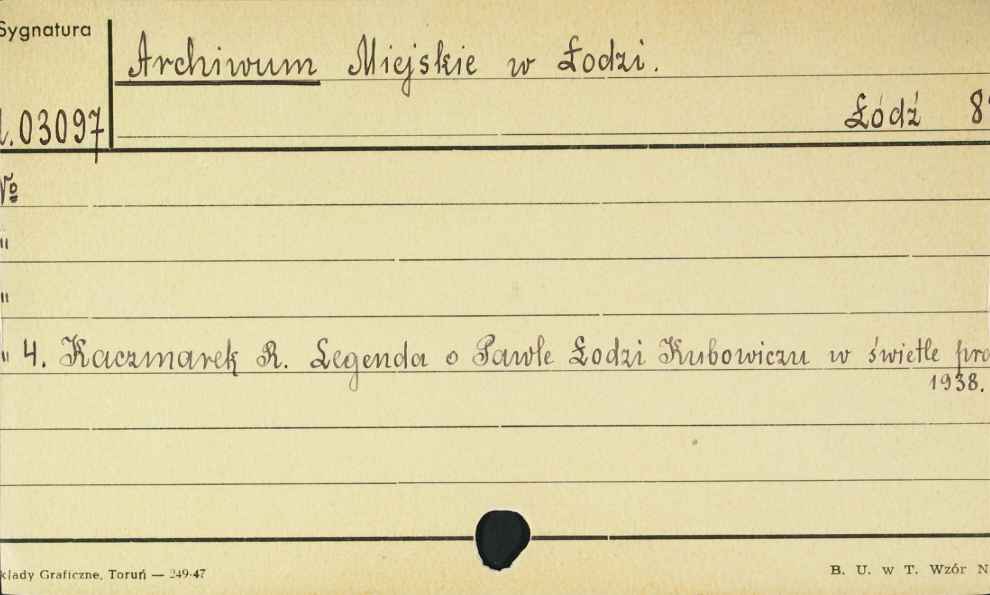 Sygnatura
Archiwum Miejskie w Łodzi.
.03097
Łódź 8
№
"
"
" 4. Kaczmarek R. Legenda o Pawle Łodzi Kubowiczu w świetle
1938.
kłady Graficzne, Toruń — 249-47
B. U. w T. Wzór N